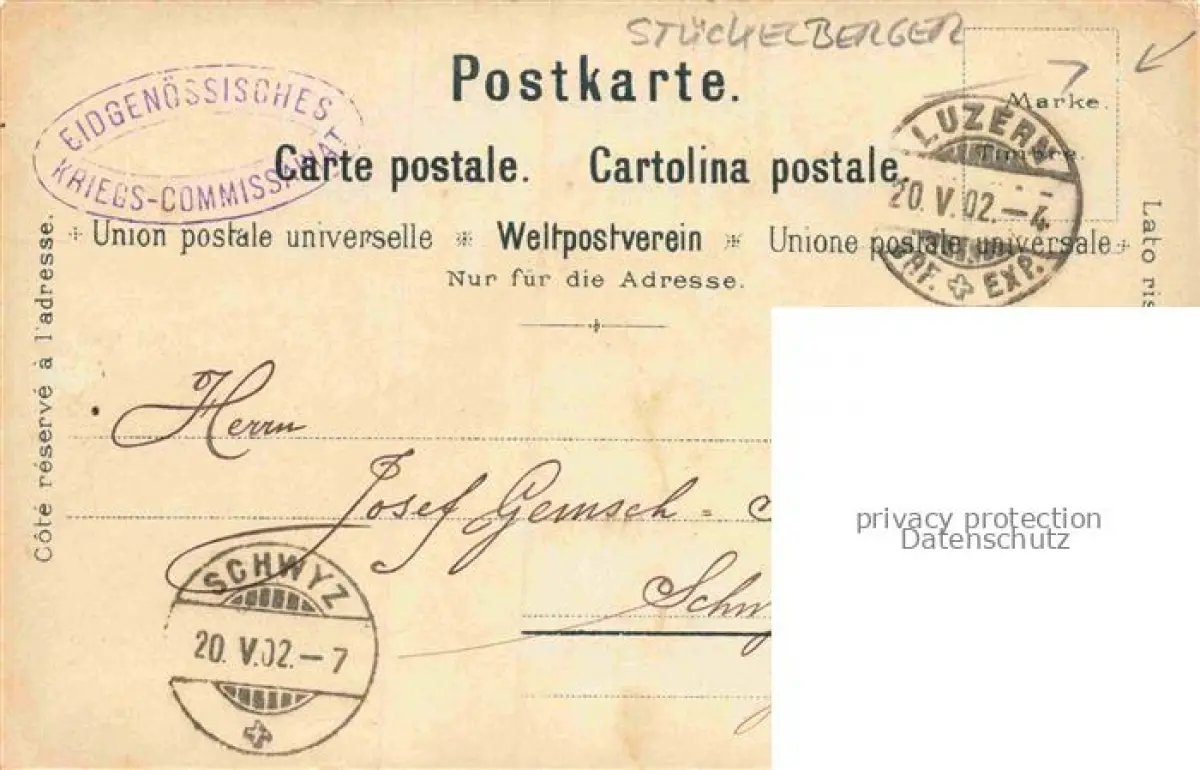 STÜCKELBERGER
Postkarte.
Marke.
EIDGENÖSSISCHES
KRIEGS-COMMISSARIAT
LUZERN
Timbre.
Carte postale. Cartolina postale.
20. V. 02. – 4
Union postale universelle Weltpostverein Unione postale universale
BRF. EXP.
Nur für die Adresse.
Côté réservé à l'adresse.
Lato ris
Herrn
Josef Gemsch =
privacy protection
Datenschutz
SCHWYZ
Schwy
20. V. 02. – 7